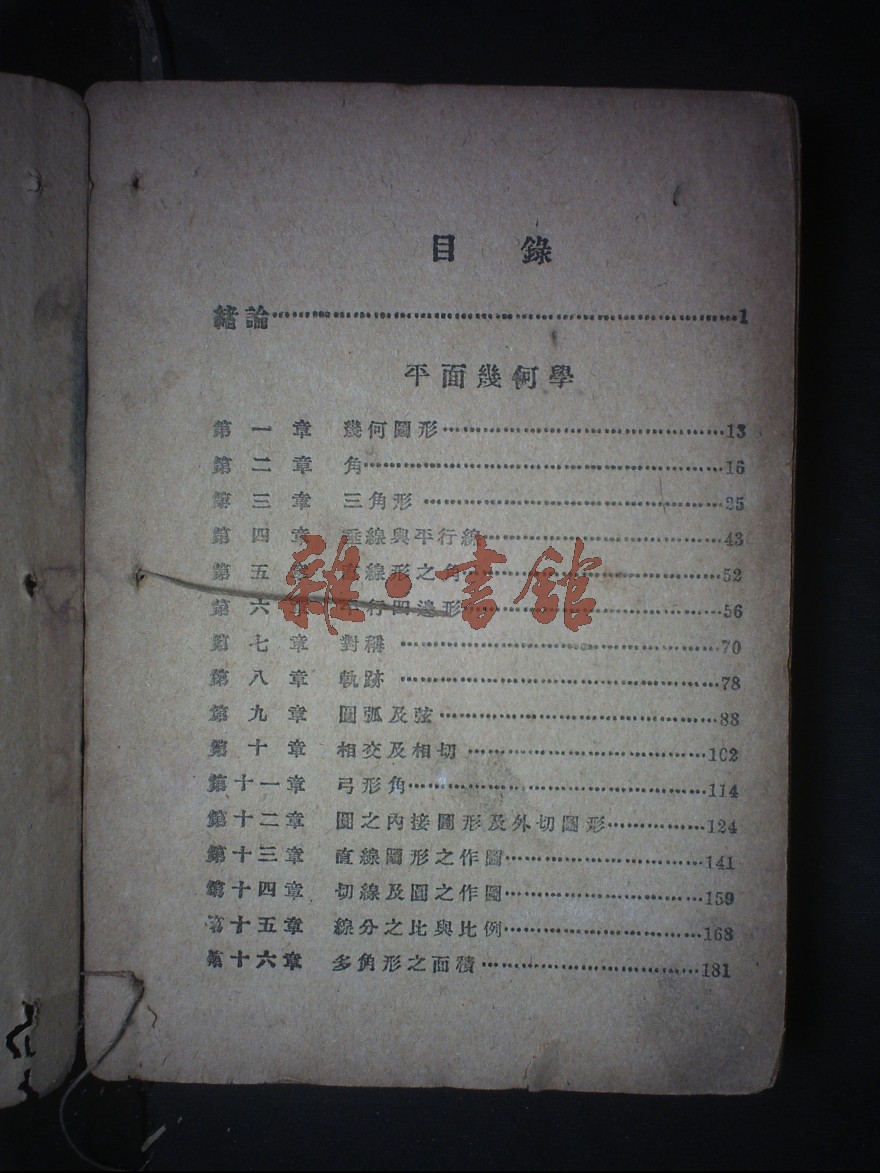 目　錄
緒論……1
平面幾何學
第一章　幾何圖形……13
第二章　角……16
第三章　三角形……35
第四章　垂線與平行線……43
第五章　直線形之角……52
第六章　平行四邊形……56
第七章　對稱……70
第八章　軌跡……78
第九章　圓弧及弦……88
第十章　相交及相切……102
第十一章　弓形角……114
第十二章　圓之內接圖形及外切圖形……124
第十三章　直線圖形之作圖……141
第十四章　切線及圓之作圖……159
第十五章　線分之比與比例……168
第十六章　多角形之面積……181
雜·書館